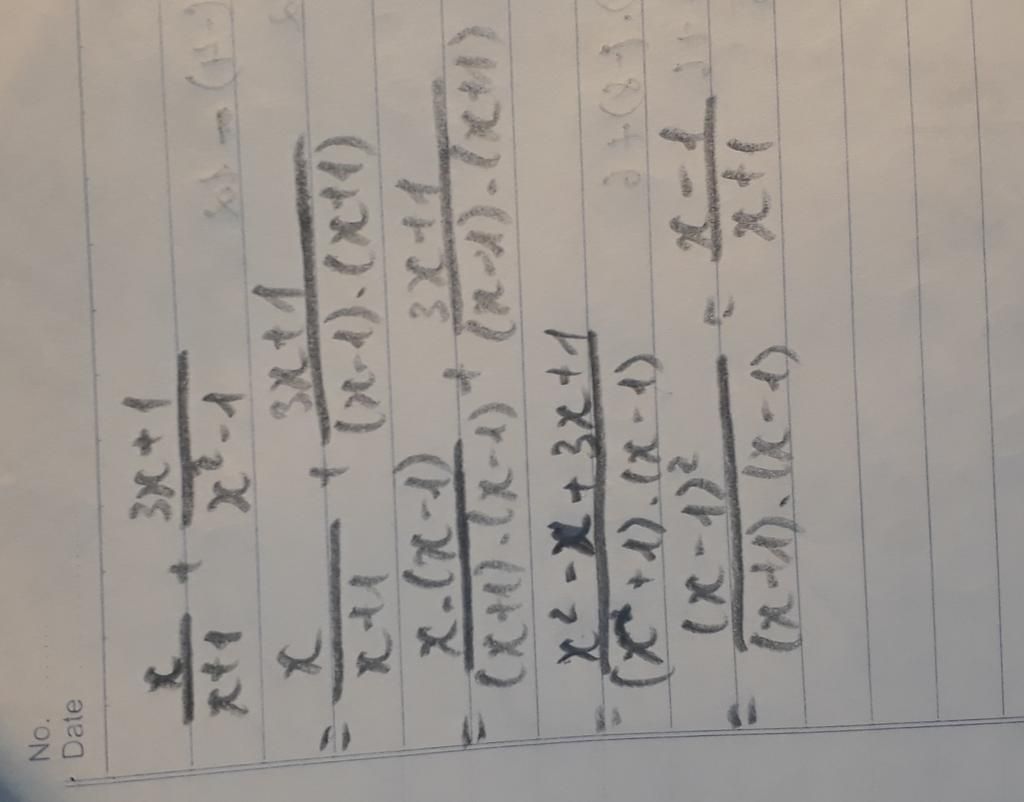 No.
Date
x/(x+1) + (3x+1)/(x²-1)
= x/(x+1) + (3x+1)/((x-1).(x+1))
= x.(x-1)/((x+1).(x-1)) + (3x+1)/((x-1).(x+1))
= (x²-x+3x+1)/((x+1).(x-1))
= (x-1)²/((x+1).(x-1)) = (x-1)/(x+1)